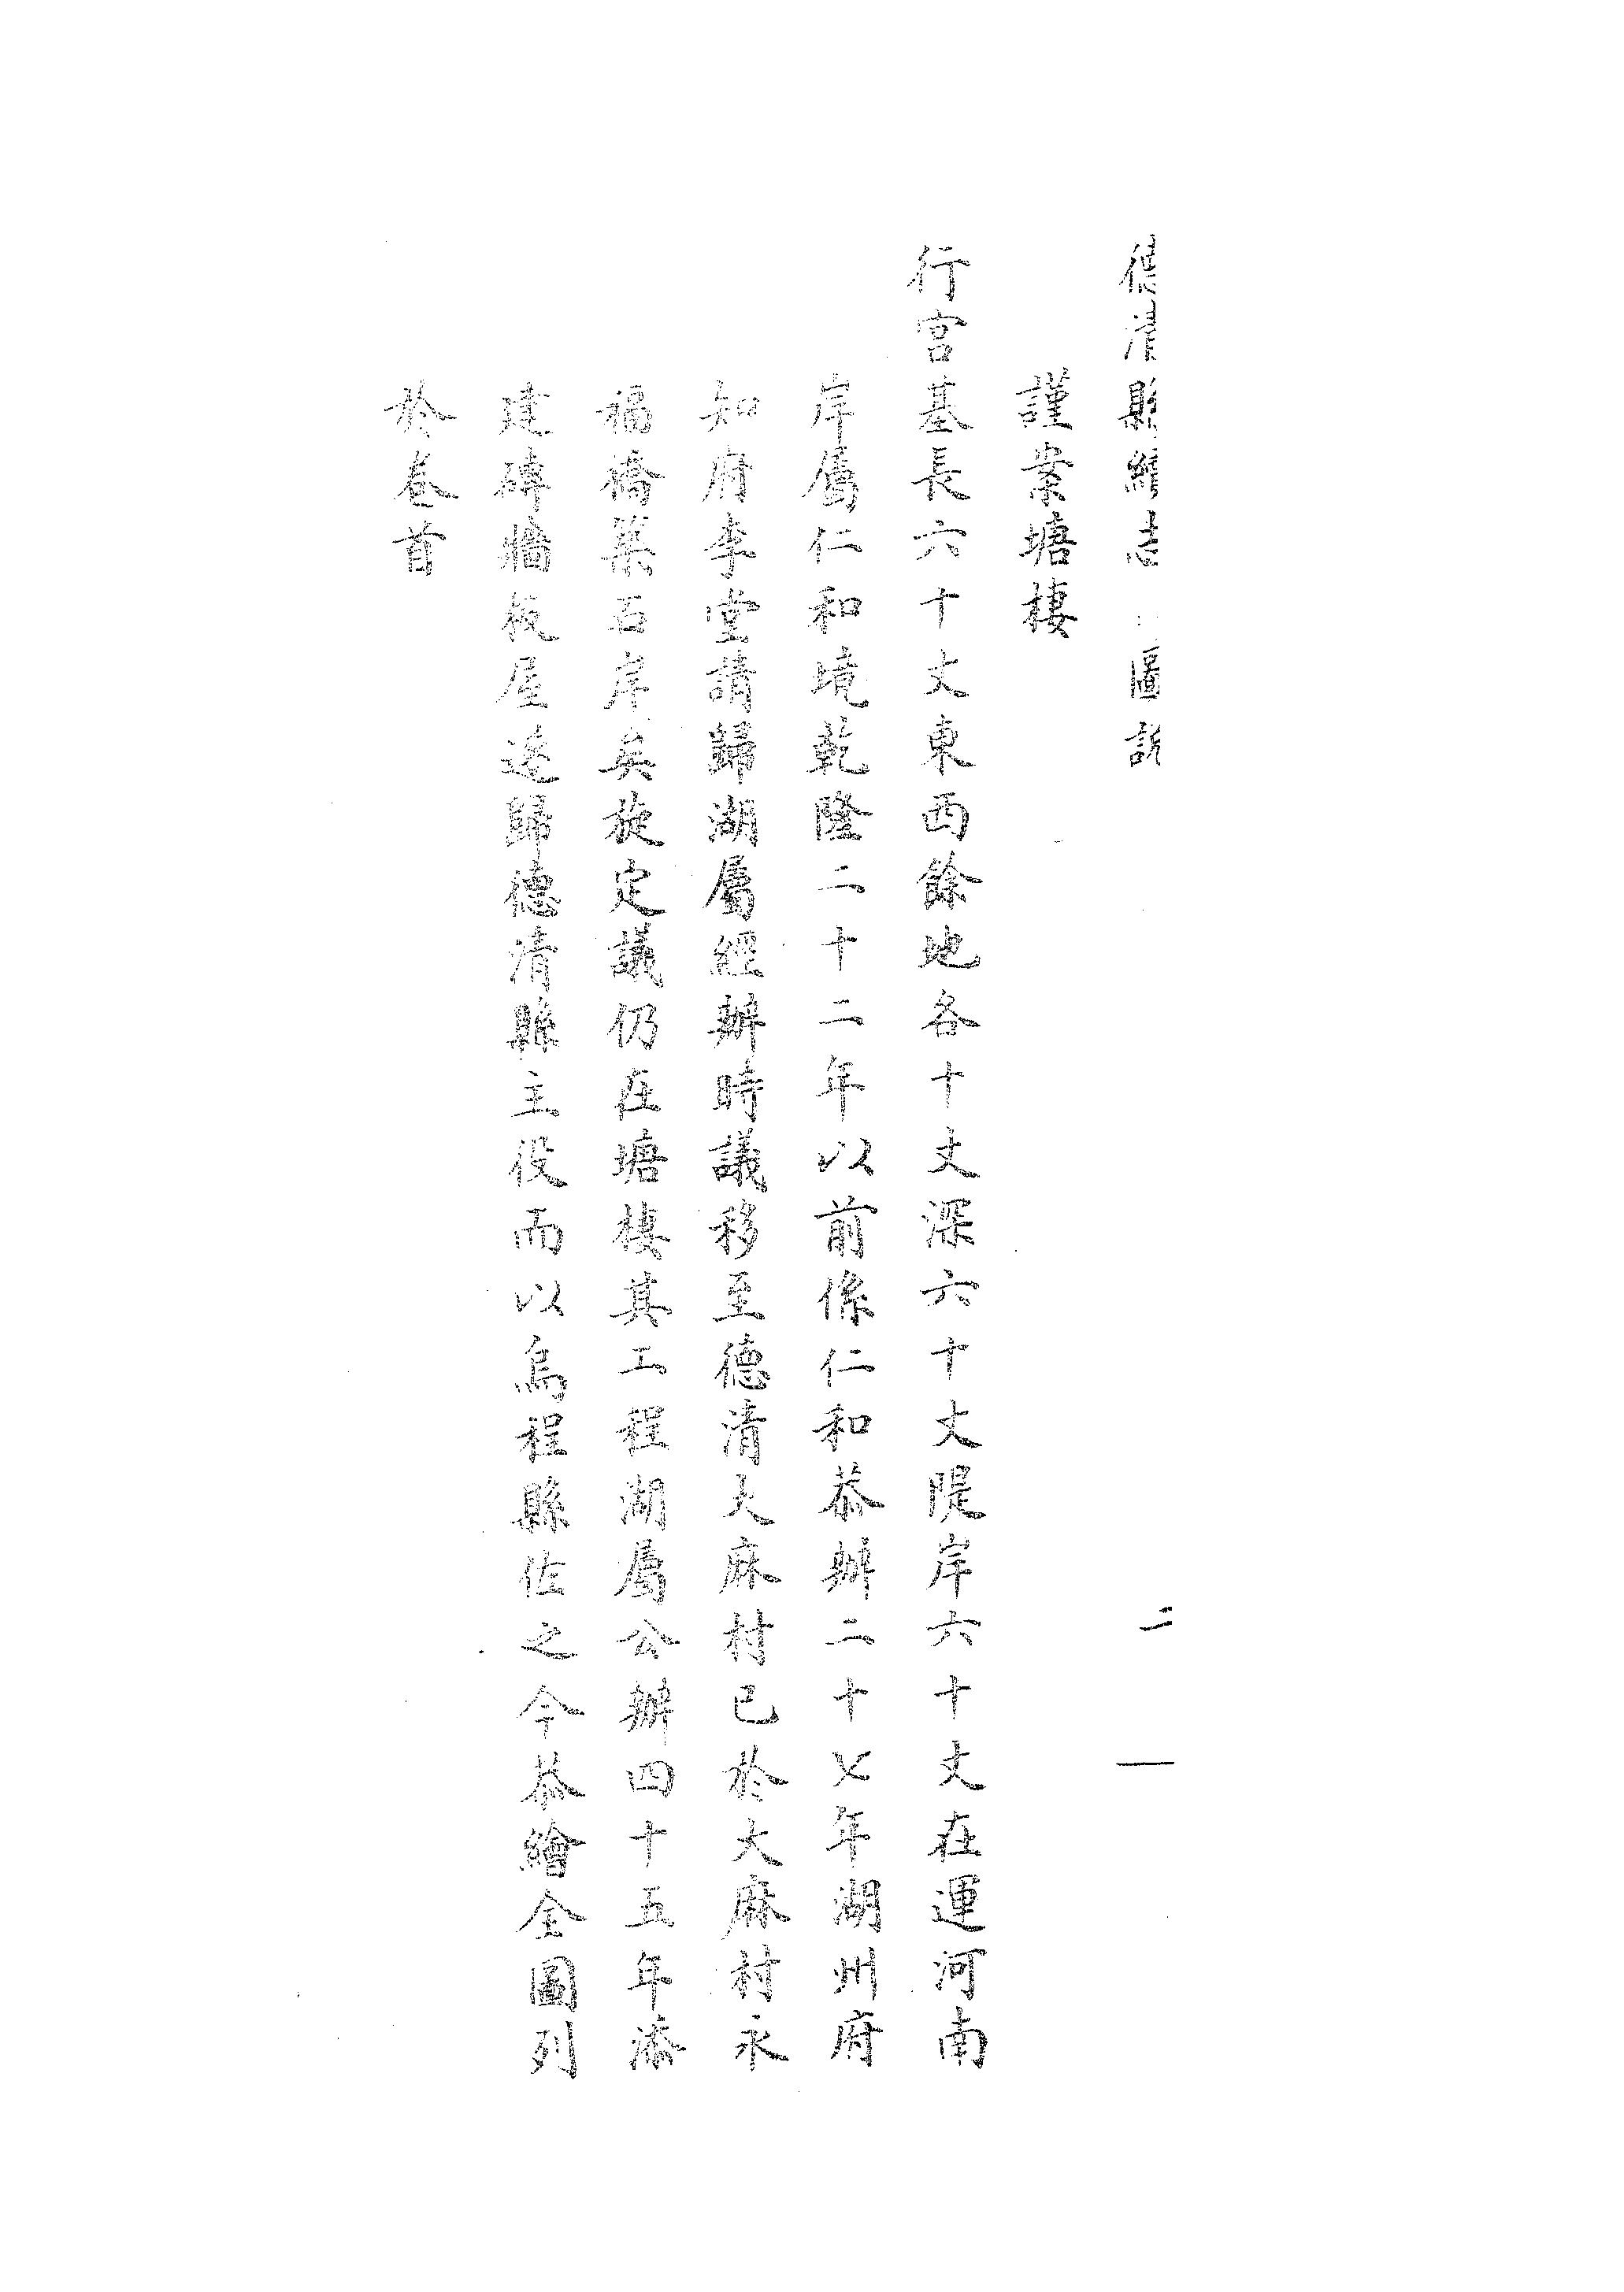 德清縣續志 圖説 二
謹案塘棲
行宮基長六十丈東西餘地各十丈深六十丈隄岸六十丈在運河南
岸屬仁和境乾隆二十二年以前係仁和恭辦二十七年湖州府
知府李堂請歸湖屬經辦時議移至德清大麻村已於大麻村永
福橋築石岸矣旋定議仍在塘棲其工程湖屬公辦四十五年添
建磚牆板屋遂歸德清縣主役而以烏程縣佐之今恭繪全圖列
於卷首